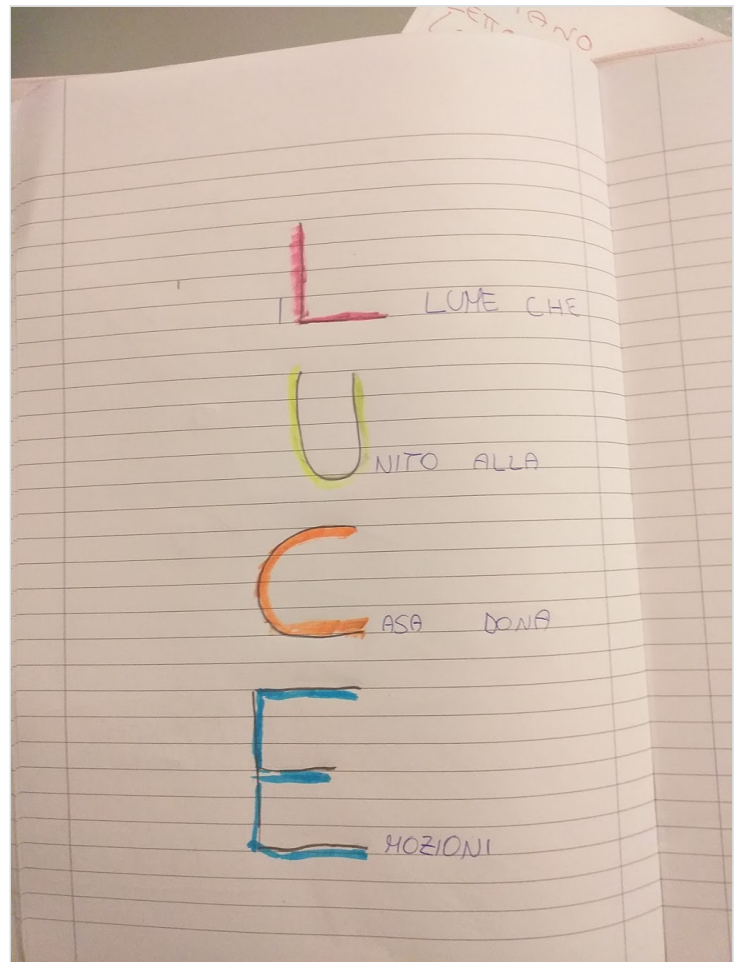 L LUME CHE
UNITO ALLA
CASA DONA
EMOZIONI